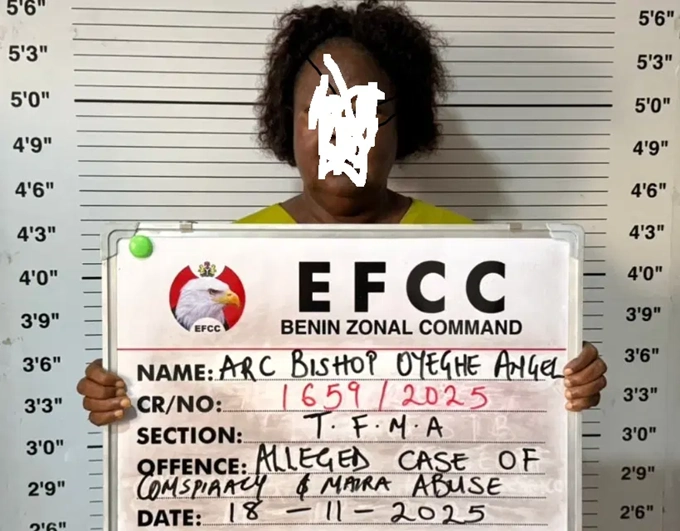 5'6"
5'3"
5'0"
4'9"
4'6"
4'3"
4'0"
3'9"
3'6"
3'3"
3'0"
2'9"
2'6"
5'6"
5'3"
5'0"
4'9"
4'6"
4'3"
4'0"
3'9"
3'6"
3'3"
3'0"
2'9"
2'6"
EFCC
EFCC
BENIN ZONAL COMMAND
NAME: ARC BISHOP OYEGHE ANGEL
CR/NO: 1659/2025
SECTION: T.F.M.A
OFFENCE: ALLEGED CASE OF
COMSPIRAACY & MAIRA ABUSE
DATE: 18-11-2025